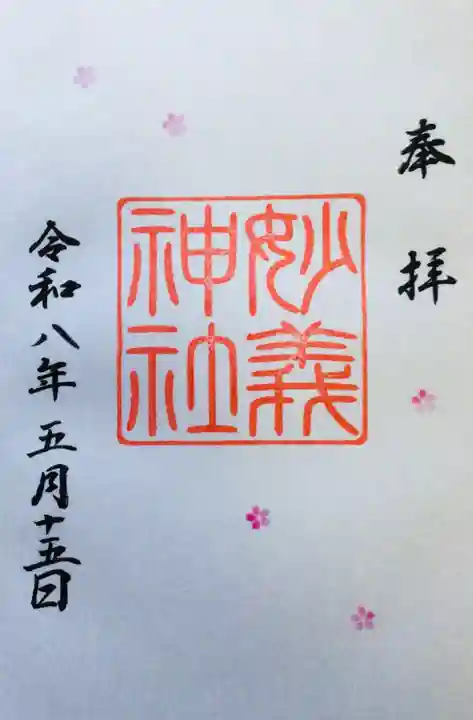 奉拝
妙義
神社
令和八年五月十五日